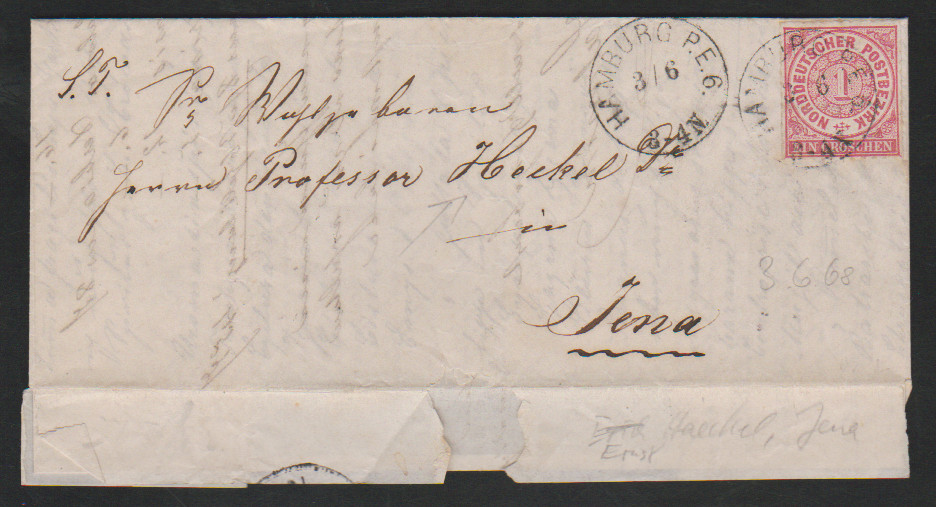 S. T.
Sr Wohlgeboren
Herrn Professor Heckel Dr
in
Jena
HAMBURG P.E.6.
3/6
3-4N
HAMBURG
6
NORDDEUTSCHER POSTBEZIRK
1
EIN GROSCHEN
3.6.68
Haeckel, Jena
Ernst